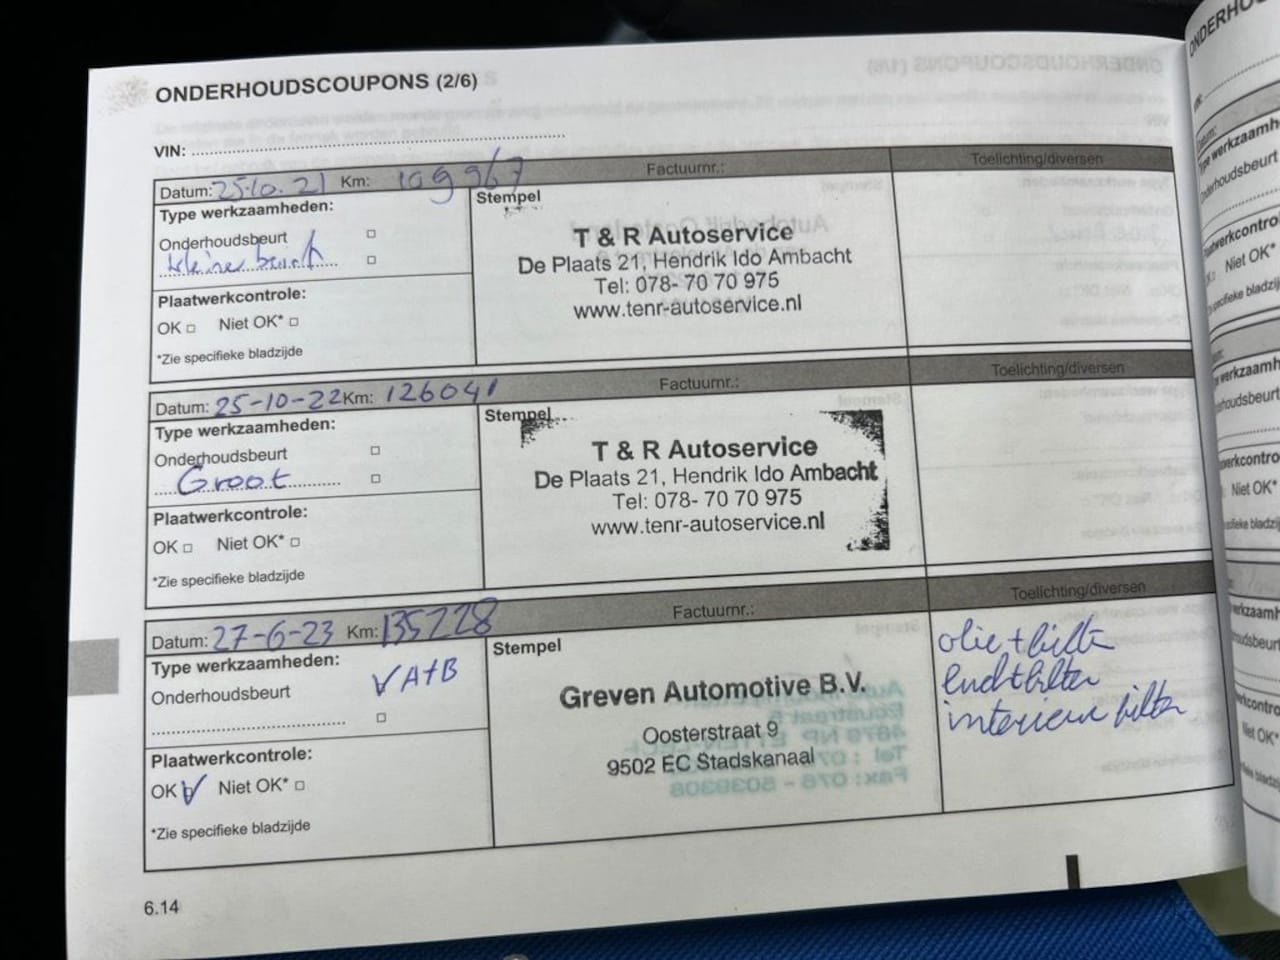 ONDERHOUDSCOUPONS (2/6)
VIN:
Datum: 25-10-21 Km: 109967 Factuurnr.: Toelichting/diversen
Type werkzaamheden:
Onderhoudsbeurt
kleine beurt
Plaatwerkcontrole:
OK Niet OK*
*Zie specifieke bladzijde
Stempel
T & R Autoservice
De Plaats 21, Hendrik Ido Ambacht
Tel: 078- 70 70 975
www.tenr-autoservice.nl
Datum: 25-10-22 Km: 126041 Factuurnr.: Toelichting/diversen
Type werkzaamheden:
Onderhoudsbeurt
Groot
Plaatwerkcontrole:
OK Niet OK*
*Zie specifieke bladzijde
Stempel
T & R Autoservice
De Plaats 21, Hendrik Ido Ambacht
Tel: 078- 70 70 975
www.tenr-autoservice.nl
Datum: 27-6-23 Km: 135228 Factuurnr.: Toelichting/diversen
Type werkzaamheden:
Onderhoudsbeurt A+B
Plaatwerkcontrole:
OK Niet OK*
*Zie specifieke bladzijde
Stempel
Greven Automotive B.V.
Oosterstraat 9
9502 EC Stadskanaal
olie+filter
lucht filter
interieur filter
6.14